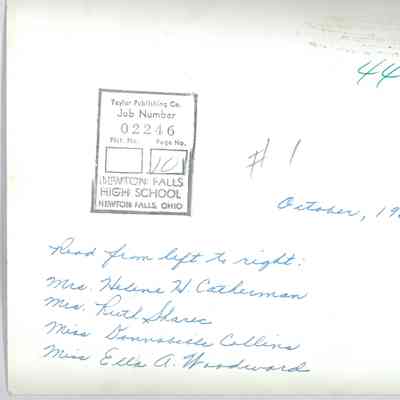 44
Taylor Publishing Co.
Job Number
02246
Pict. No. Page No.
101
NEWTON FALLS
HIGH SCHOOL
NEWTON FALLS, OHIO
# 1
October, 19
Read from left to right:
Mrs. Helene H. Catherman
Mrs. Ruth Sharec
Miss Donnabelle Collins
Miss Ella A. Woodward